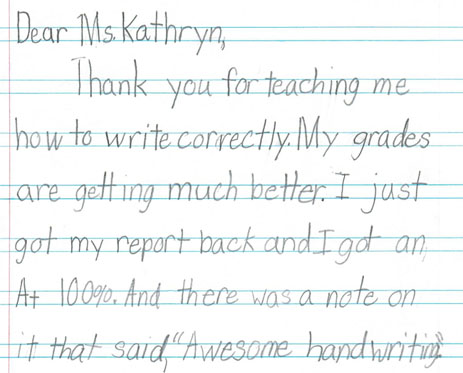 Dear Ms. Kathryn,
Thank you for teaching me
how to write correctly. My grades
are getting much better. I just
got my report back and I got an
A+ 100%. And there was a note on
it that said, "Awesome handwriting."